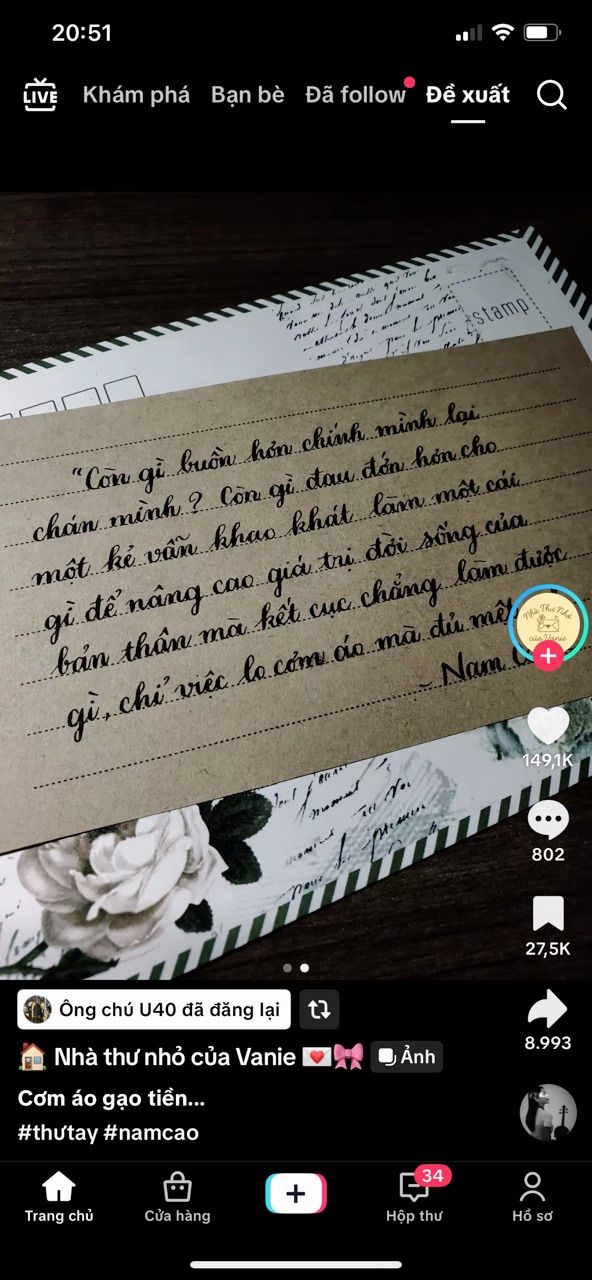 20:51
LIVE Khám phá Bạn bè Đã follow Đề xuất
stamp
"Còn gì buồn hơn chính mình lại
chán mình? Còn gì đau đớn hơn cho
một kẻ vẫn khao khát làm một cái
gì để nâng cao giá trị đời sống của
bản thân mà kết cục chẳng làm được
gì, chỉ việc lo cơm áo mà đủ mệt
- Nam
Nhà Thư Nhỏ
của Vanie
149,1K
802
27,5K
8.993
Ông chú U40 đã đăng lại
Nhà thư nhỏ của Vanie
Ảnh
Cơm áo gạo tiền...
#thưtay #namcao
34
Trang chủ Cửa hàng Hộp thư Hồ sơ